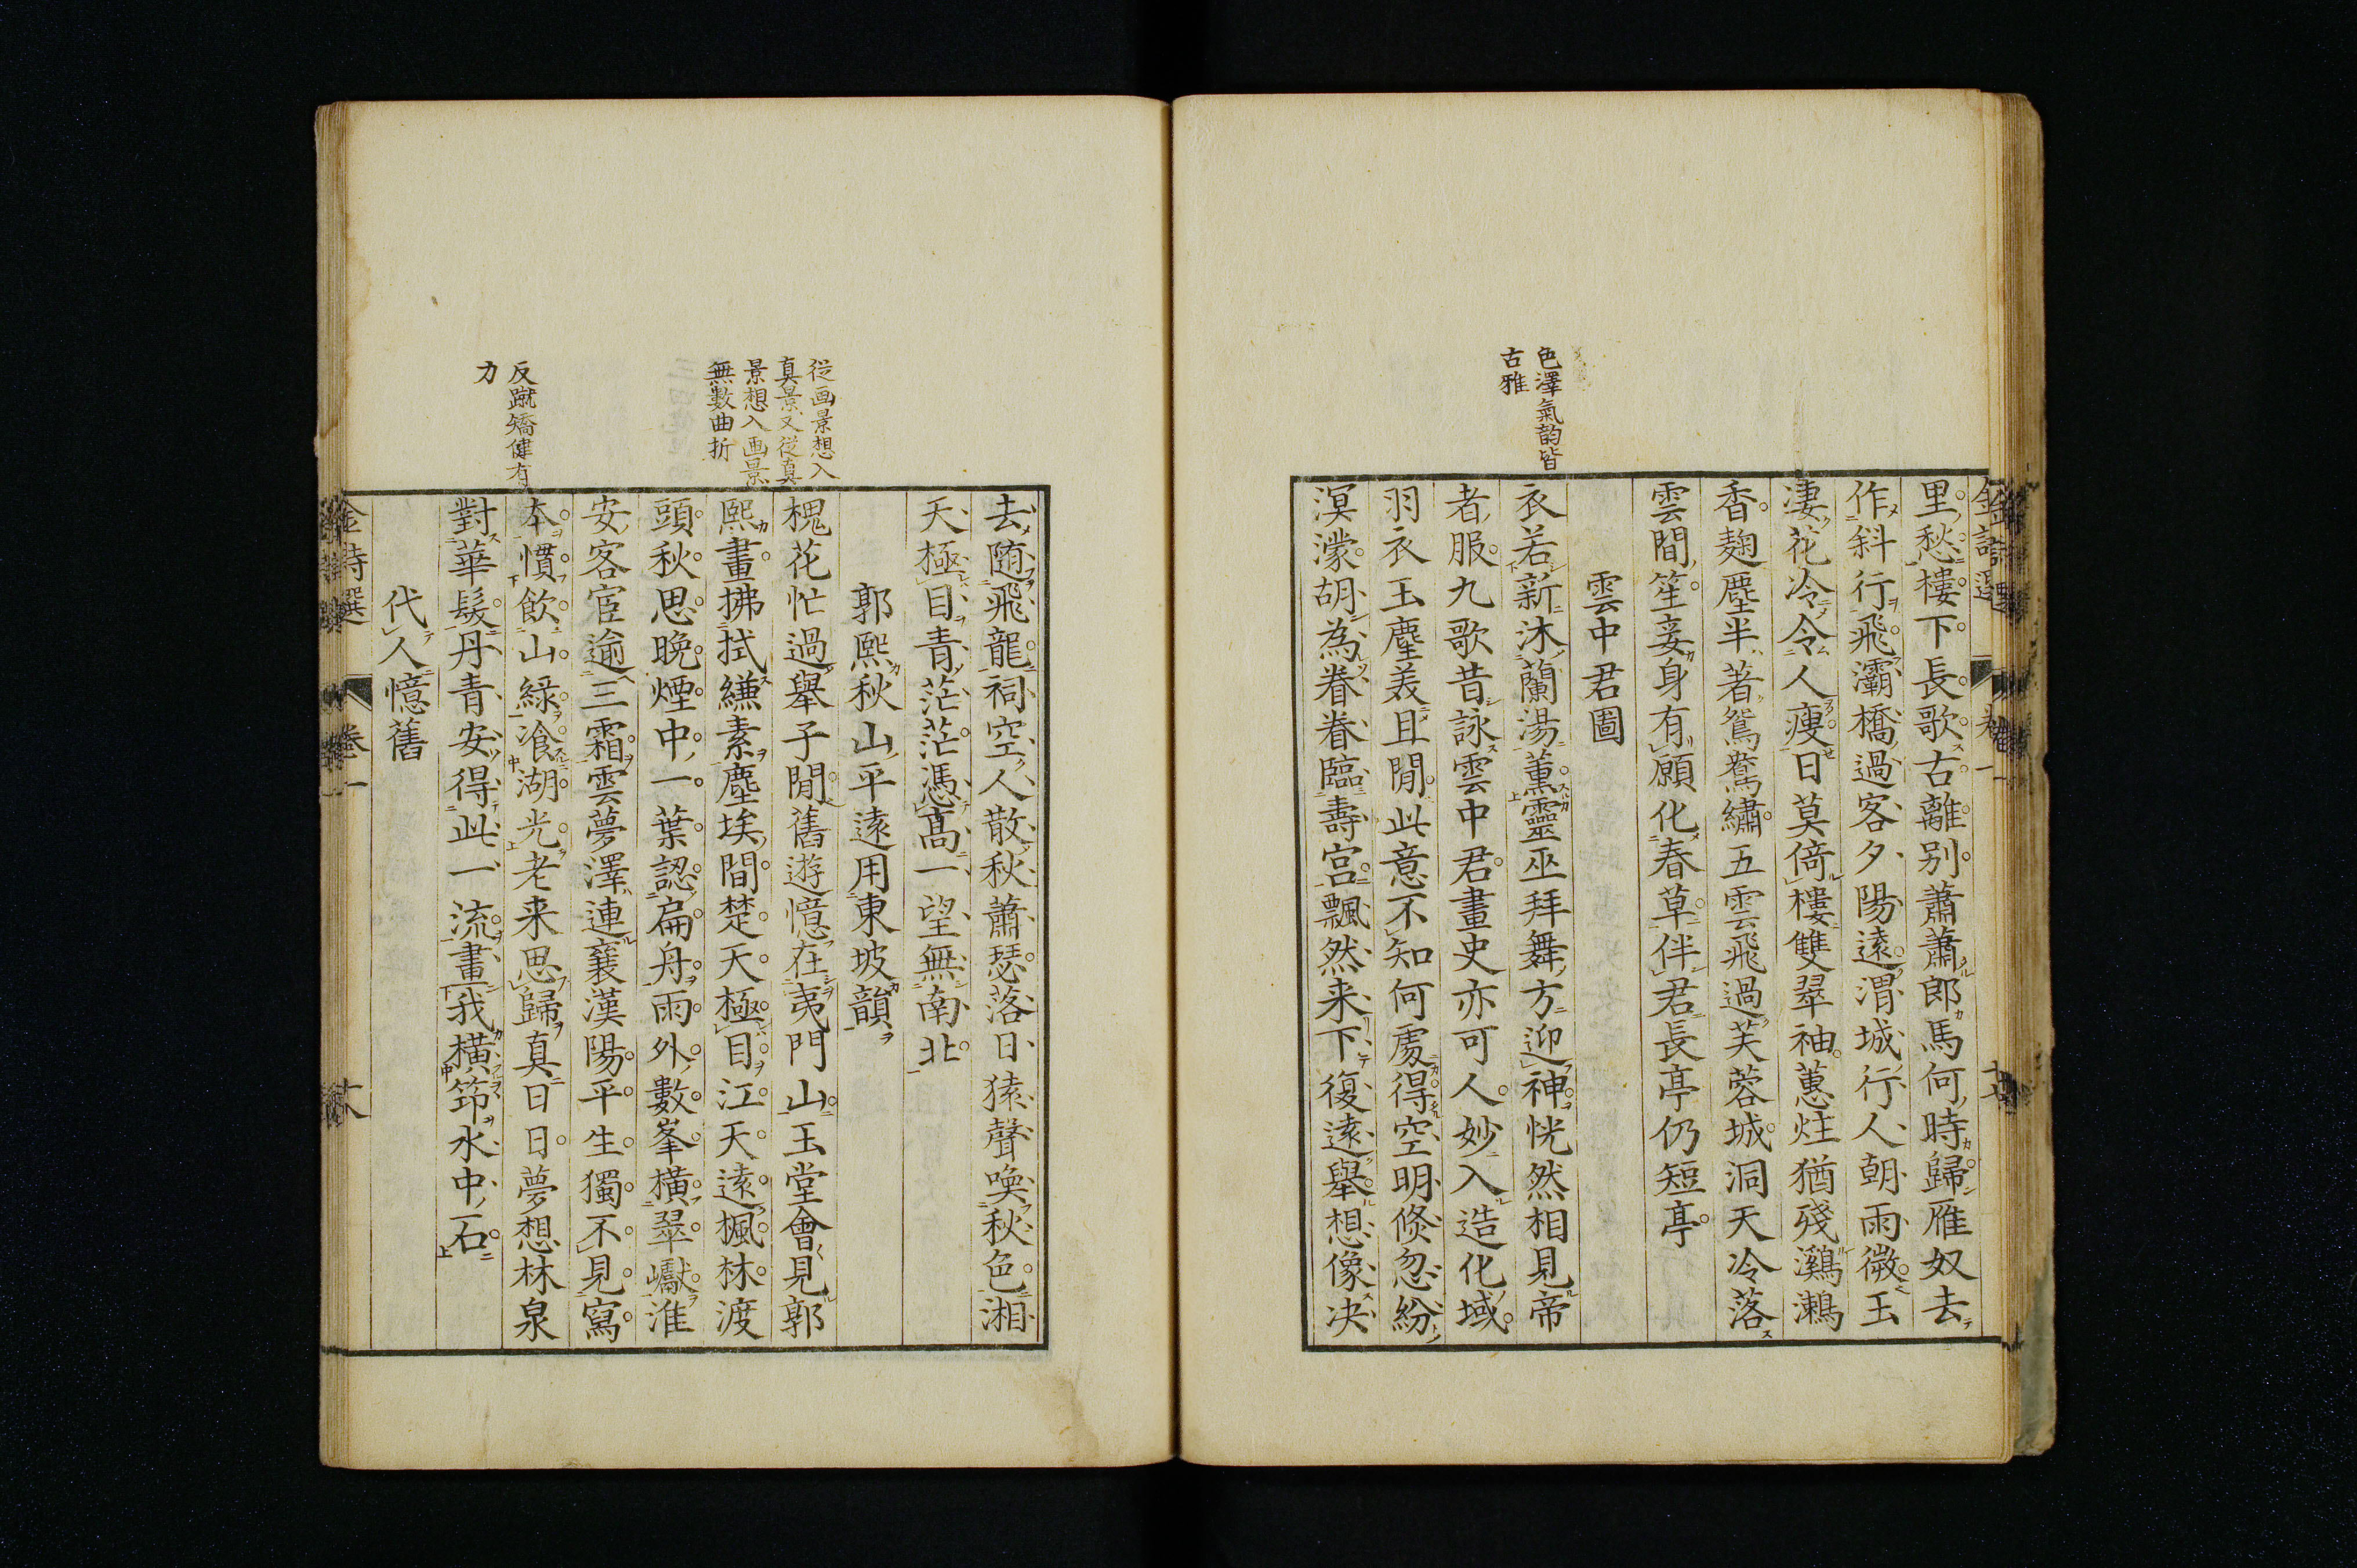 金詩選 卷一
里愁樓下長歌古離别蕭蕭郎馬何時歸雁奴去
作斜行飛灞橋過客夕陽遠渭城行人朝雨微玉
淒花冷令人瘦日莫倚樓雙翠袖蕙炷猶殘鸂鶒
香麹塵半著鴛鴦繡五雲飛過芙蓉城洞天冷落
雲間笙妾身有願化春草伴君長亭仍短亭
雲中君圖
色澤氣韵皆
古雅
衣若新沐蘭湯薰靈巫拜舞方迎神恍然相見帝
者服九歌昔詠雲中君畫史亦可人妙入造化域
羽衣玉塵美且閒此意不知何處得空明倏忽紛
溟濛胡為眷眷臨壽宮飄然来下復遠舉想像决
去随飛龍祠空人散秋蕭瑟落日猿聲喚秋色湘
天極目青茫茫憑高一望無南北
郭熙秋山平遠用東坡韻
從画景想入
真景又從真
景想入画景
無數曲折
槐花忙過舉子閒舊遊憶在夷門山玉堂會見郭
熙畫拂拭縑素塵埃間楚天極目江天遠楓林渡
頭秋思晚煙中一葉認扁舟雨外數峯橫翠巘淮
安客宦逾三霜雲夢澤連襄漢陽平生獨不見寫
反蹴矯健有
力
本慣飲山綠飡湖光老来思歸真日日夢想林泉
對華髮丹青安得此一流畫我橫笻水中石
代人憶舊
金詩選 卷一 十八